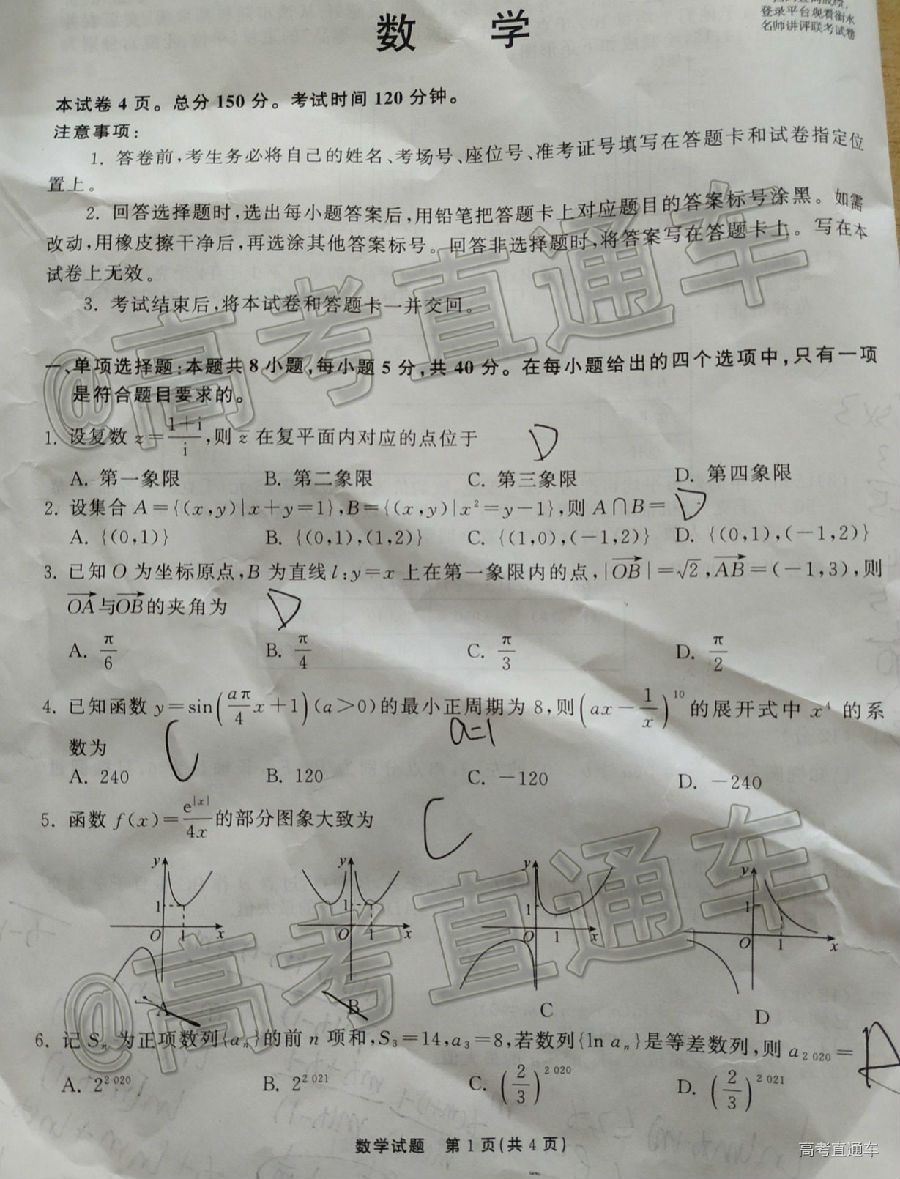 数 学
登录平台观看衡水
名师讲评联考试卷
本试卷 4 页。总分 150 分。考试时间 120 分钟。
注意事项:
1. 答卷前,考生务必将自己的姓名、考场号、座位号、准考证号填写在答题卡和试卷指定位
置上。
2. 回答选择题时,选出每小题答案后,用铅笔把答题卡上对应题目的答案标号涂黑。如需
改动,用橡皮擦干净后,再选涂其他答案标号。回答非选择题时,将答案写在答题卡上。写在本
试卷上无效。
3. 考试结束后,将本试卷和答题卡一并交回。
@高考直通车
一、单项选择题:本题共 8 小题,每小题 5 分,共 40 分。在每小题给出的四个选项中,只有一项
是符合题目要求的。
1. 设复数 z=(1+i)/i,则 z̄ 在复平面内对应的点位于 D
A. 第一象限 B. 第二象限 C. 第三象限 D. 第四象限
2. 设集合 A={(x,y)|x+y=1},B={(x,y)|x²=y-1},则 A∩B= D
A. {(0,1)} B. {(0,1),(1,2)} C. {(1,0),(-1,2)} D. {(0,1),(-1,2)}
3. 已知 O 为坐标原点,B 为直线 l:y=x 上在第一象限内的点,|OB|=√2,AB=(-1,3),则
OA与OB的夹角为 D
A. π/6 B. π/4 C. π/3 D. π/2
4. 已知函数 y=sin(aπ/4 x+1)(a>0)的最小正周期为 8,则(ax-1/x)¹⁰的展开式中 x⁴ 的系
数为 C a=1
A. 240 B. 120 C. -120 D. -240
5. 函数 f(x)=e^|x|/4x 的部分图象大致为 C
y 1 O 1 x
y 1 O 1 x
y 1 O 1 x
y 1 O 1 x
A B C D
@高考直通车
6. 记 Sₙ 为正项数列{aₙ}的前 n 项和,S₃=14,a₃=8,若数列{ln aₙ}是等差数列,则 a₂₀₂₀= A
A. 2^2020 B. 2^2021 C. (2/3)^2020 D. (2/3)^2021
数学试题 第 1 页(共 4 页)
高考直通车